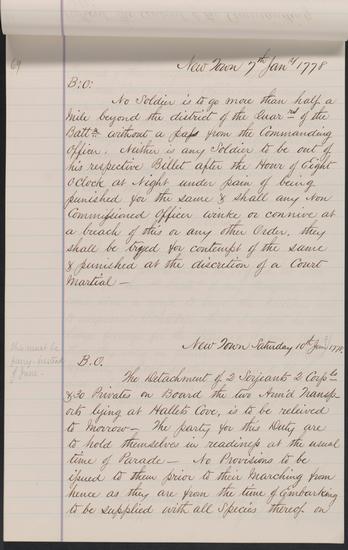 69
New Town 7th Jany 1778
B:O:
No Soldier is to go more than half a
Mile beyond the district of the Quarrs of the
Battn without a pass from the Commanding
Officer. Neither is any Soldier to be out of
his respective Billet after the Hour of Eight
O'Clock at Night under pain of being
punished for the same & shall any Non
Commissioned Officer winke or connive at
a breach of this or any other Order, they
shall be tryed for contempt of the same
& punished at the discretion of a Court
Martial —
New Town Saturday 10th 1778
this must be
of June.
B.O.
The Detachment of 2 Serjeants 2 Corpls
& 30 Privates on Board the two Arm'd Transp-
orts lying at Hallets Cove, is to be releived
to Morrow — The party for this Duty are
to hold themselves in readiness at the usual
time of Parade — No Provisions to be
issued to them prior to their Marching from
hence as they are from the time of Embarking
to be supplied with all Species thereof on